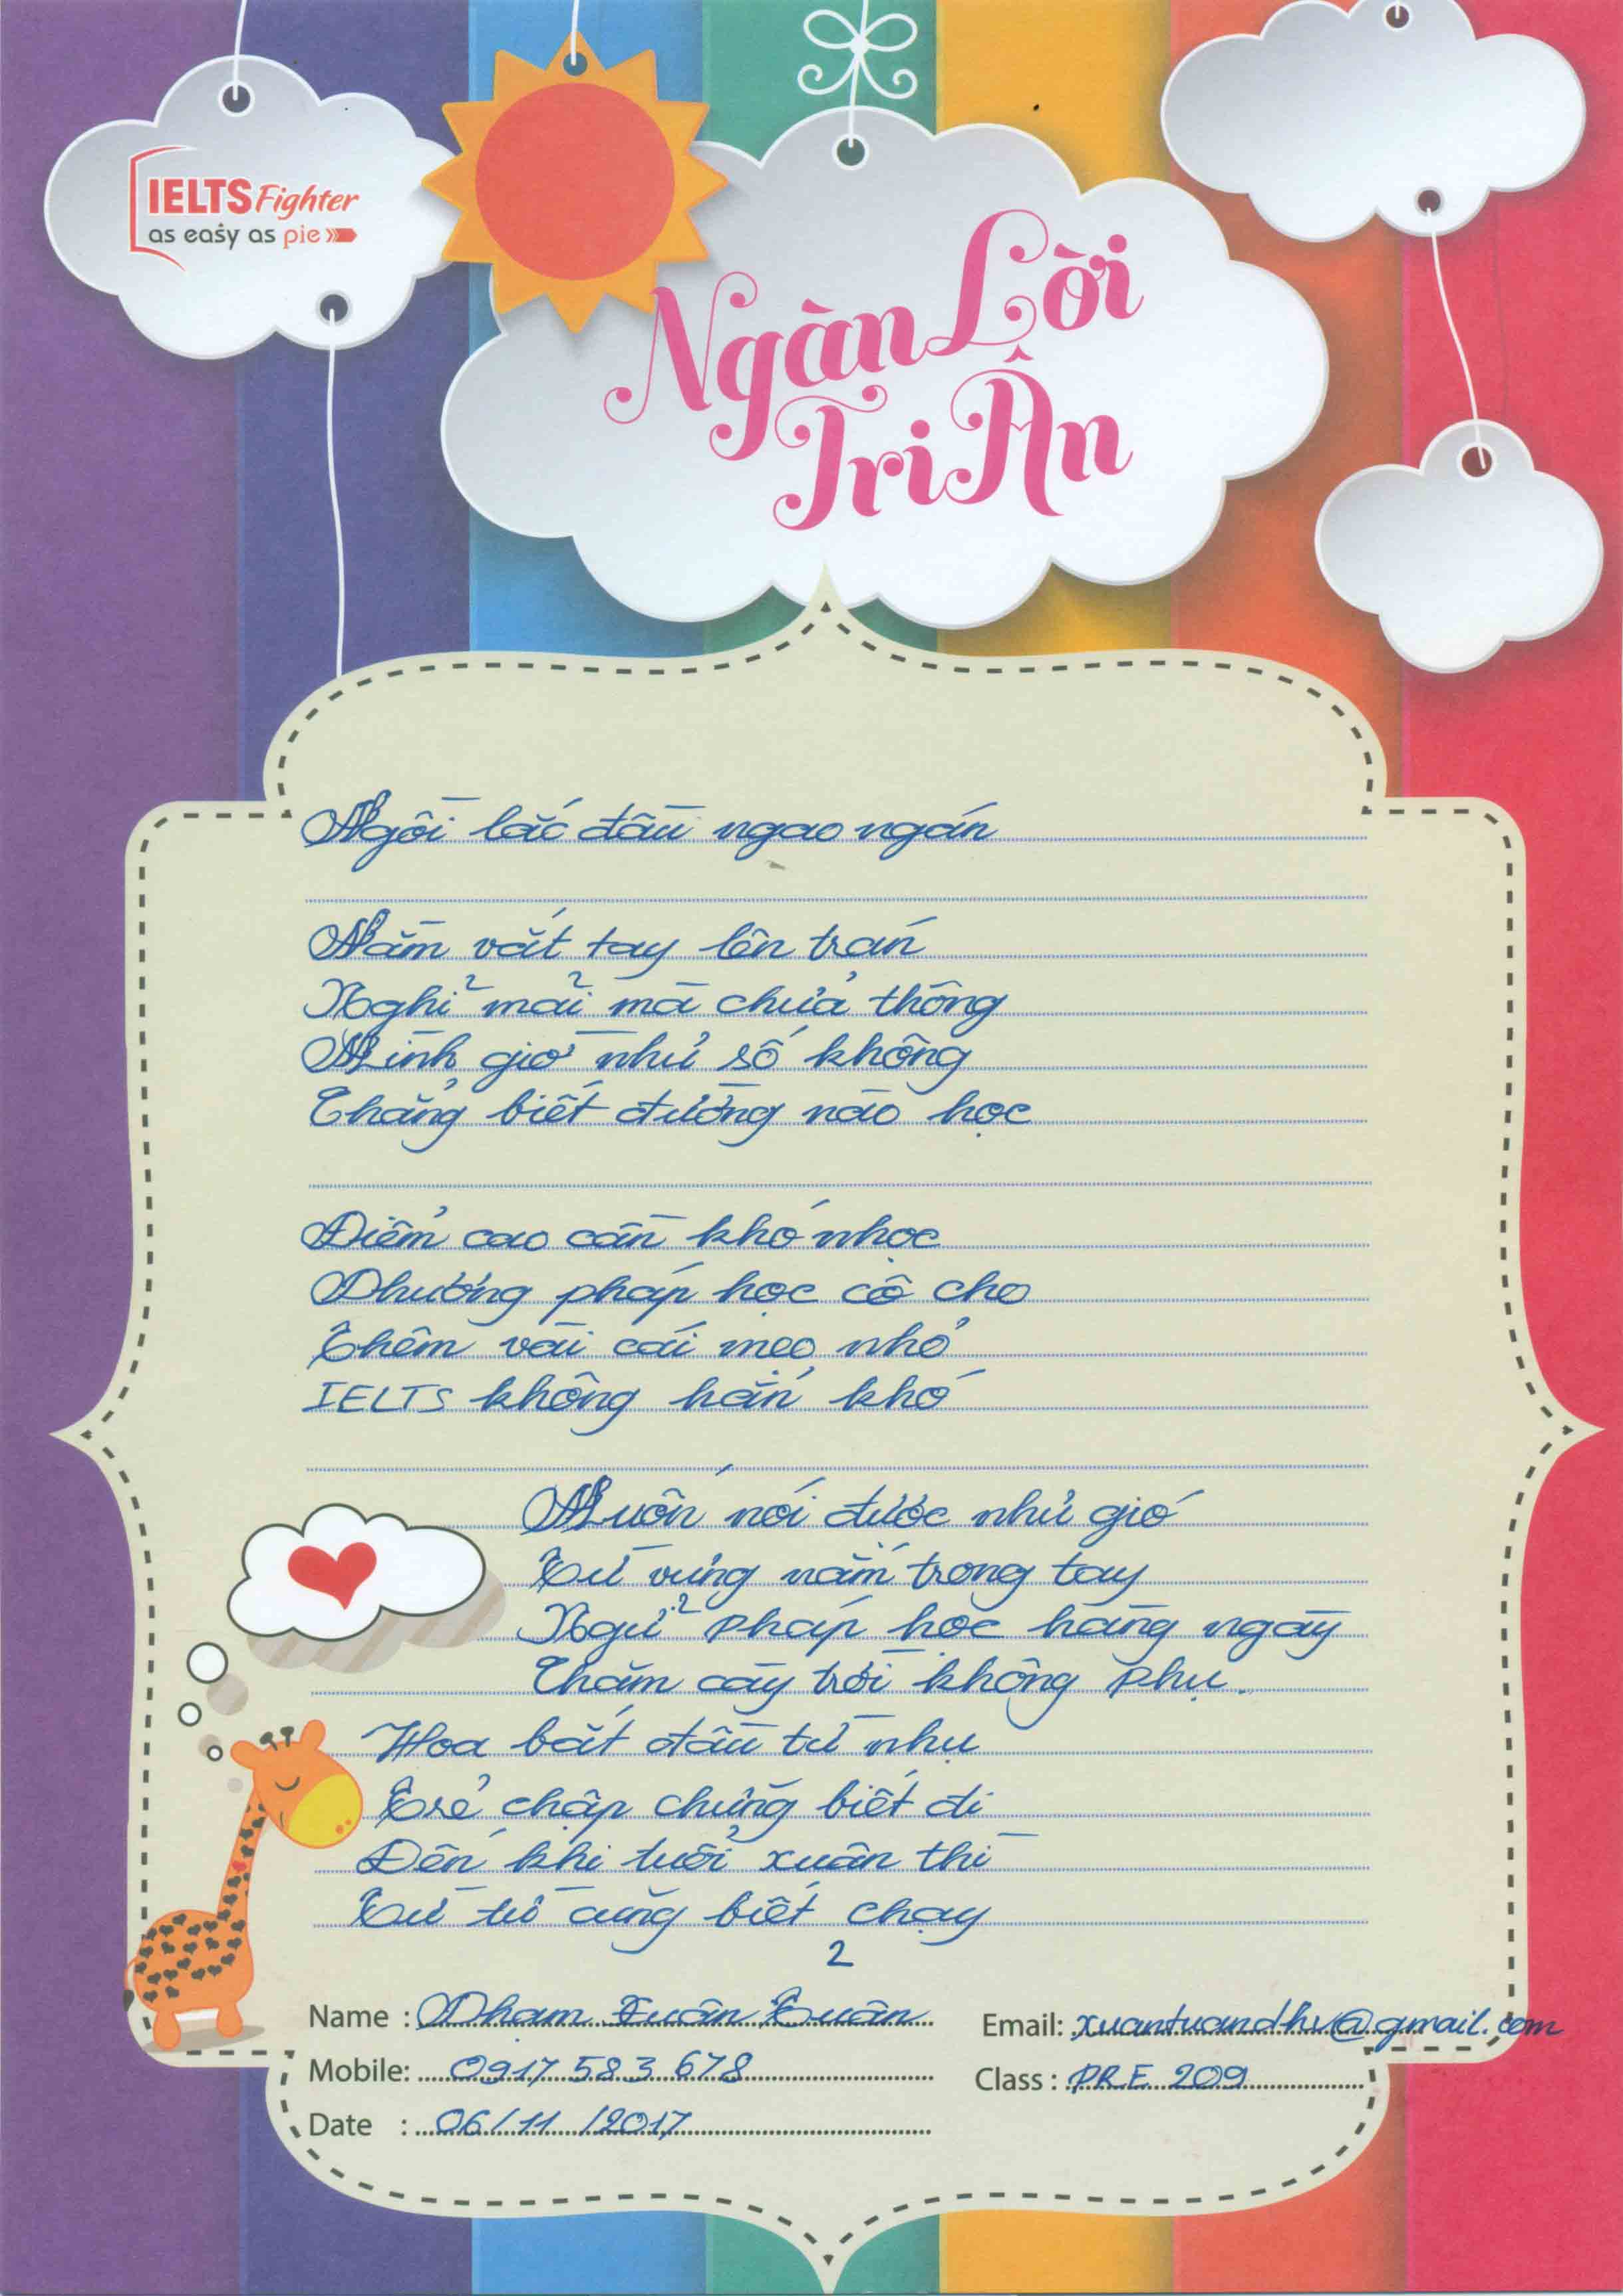 IELTS Fighter
as easy as pie
Ngàn Lời
Tri Ân
Ngồi lắc đầu ngao ngán
Nằm vắt tay lên trán
Nghĩ mãi mà chưa thông
Mình giờ như số không
Chẳng biết đường nào học
Điểm cao cần khó nhọc
Phương pháp học cô cho
Thêm vài cái mẹo nhỏ
IELTS không hẳn khó
Muốn nói được như gió
Từ vựng nắm trong tay
Ngữ pháp học hàng ngày
Chăm cày trời không phụ.
Hoa bắt đầu từ nhụ
Trẻ chập chững biết đi
Đến khi tuổi xuân thì
Từ từ cũng biết chạy
2
Name : Phạm Xuân Tuân
Email: xuantuandhv@gmail.com
Mobile: 0917 583 678
Class : PRE 209
Date : 06/11/2017